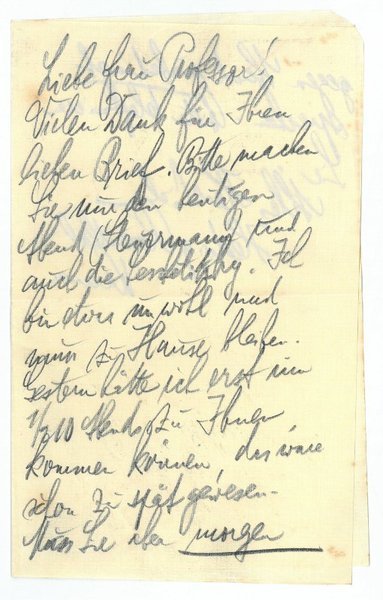 Liebe Frau Professor!
Vielen Dank für Ihren
lieben Brief. Bitte machen
Sie nur den heutigen
Abend (Heuermann) und
auch die Leschetitzky. Ich
bin etwas unwohl und
muss zu Hause bleiben.
Gestern hätte ich erst um
1/2 10 Abends zu Ihnen
kommen können, das wäre
schon zu spät gewesen.
Muss Sie aber morgen